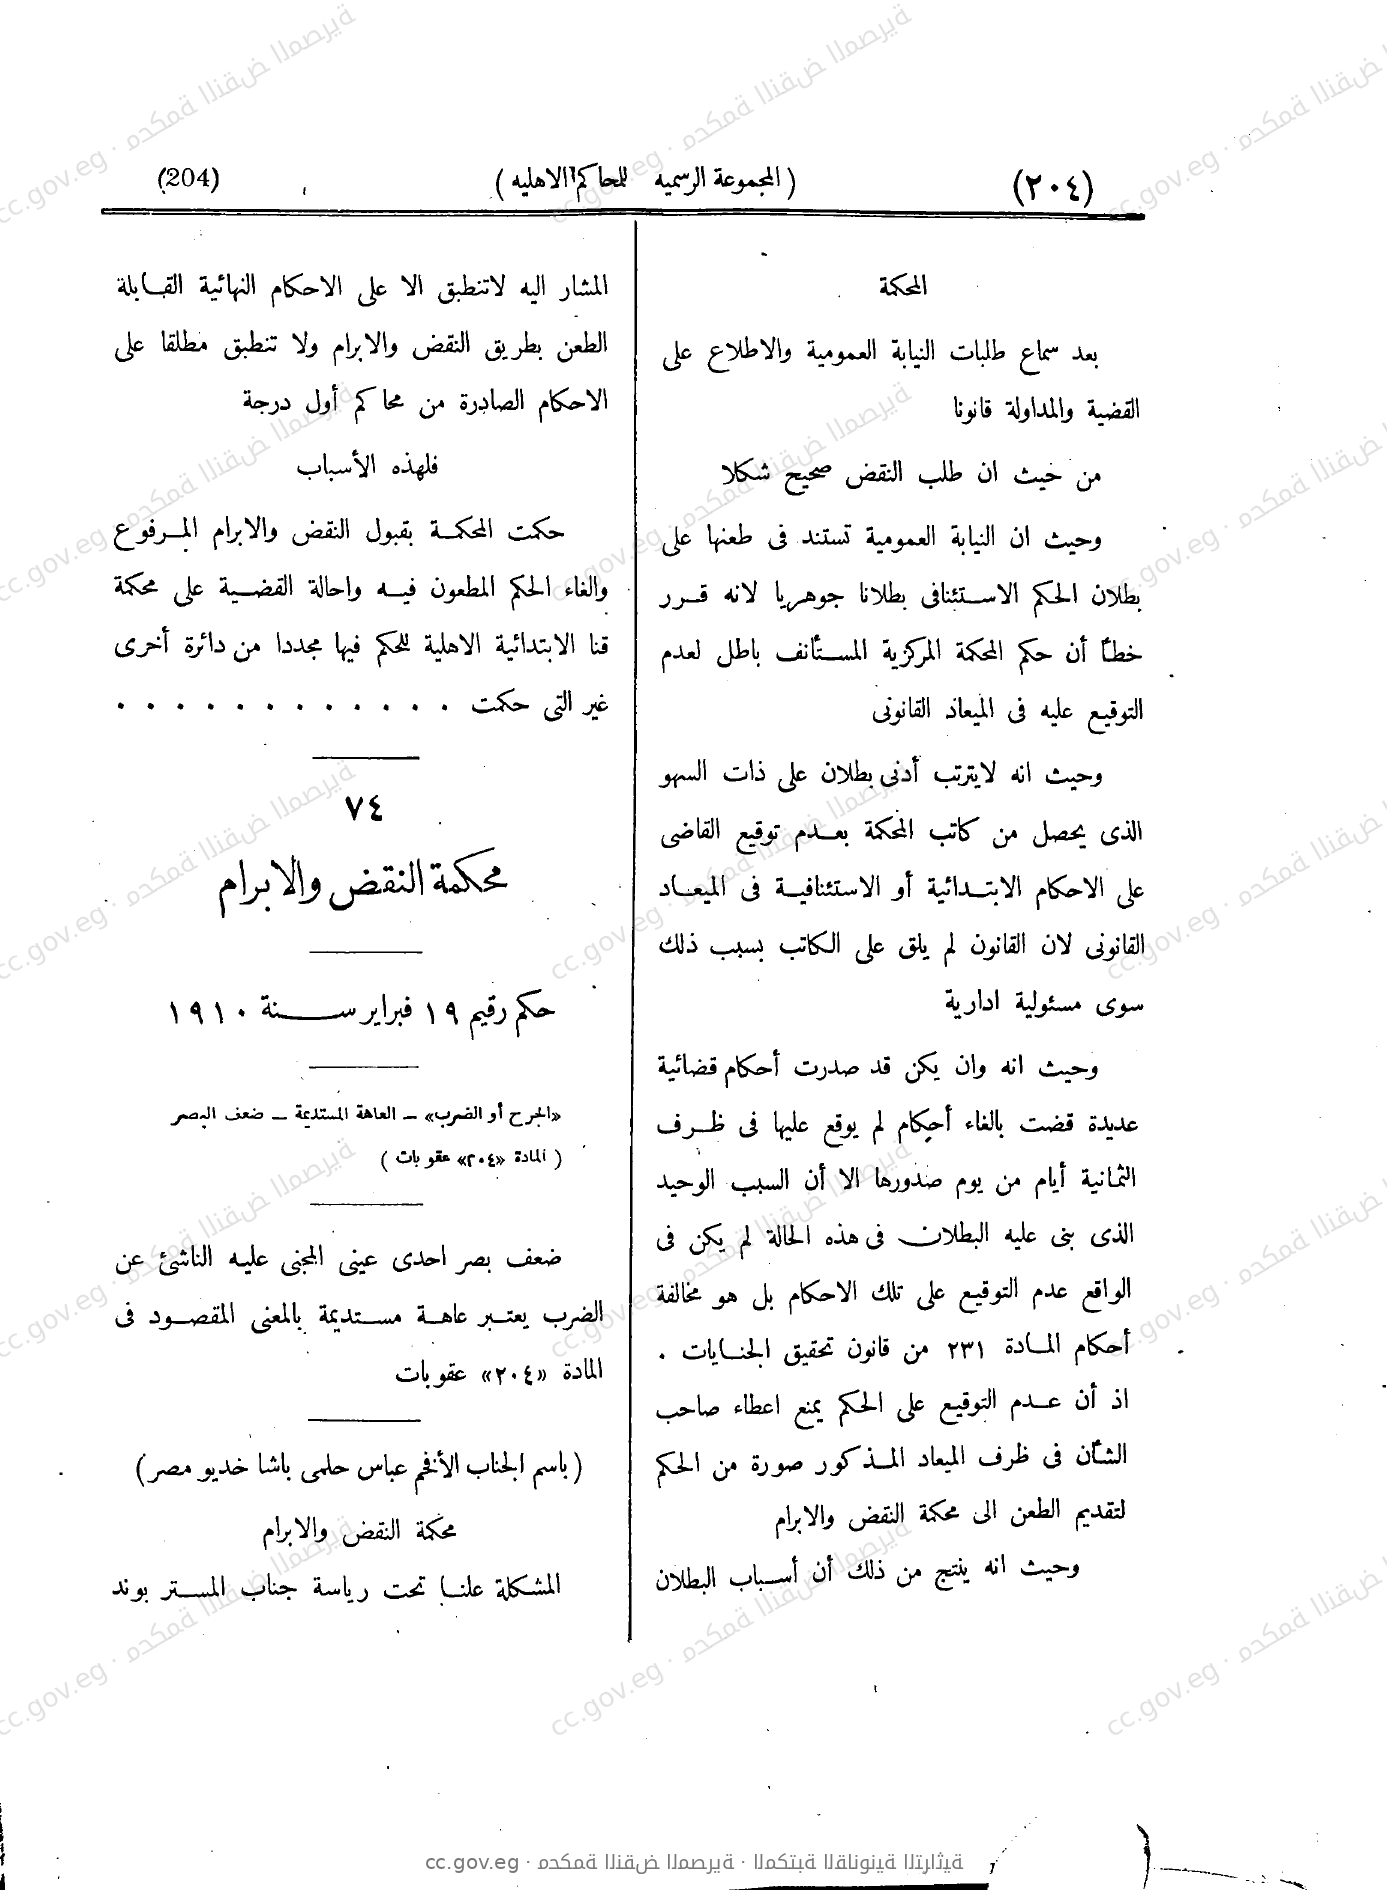 (٢٠٤)
(المجموعة الرسميه للمحاكم الاهليه)
(204)
المحكمة
بعد سماع طلبات النيابة العمومية والاطلاع على
القضية والمداولة قانونا
من حيث ان طلب النقض صحيح شكلا
وحيث ان النيابة العمومية تستند فى طعنها على
بطلان الحكم الاستئنافى بطلانا جوهريا لانه قرر
خطأ أن حكم المحكمة المركزية المستأنف باطل لعدم
التوقيع عليه فى الميعاد القانونى
وحيث انه لايترتب أدنى بطلان على ذات السهو
الذى يحصل من كاتب المحكمة بعدم توقيع القاضى
على الاحكام الابتدائية أو الاستئنافية فى الميعاد
القانونى لان القانون لم يلق على الكاتب بسبب ذلك
سوى مسئولية ادارية
وحيث انه وان يكن قد صدرت أحكام قضائية
عديدة قضت بالغاء أحكام لم يوقع عليها فى ظرف
الثمانية أيام من يوم صدورها الا أن السبب الوحيد
الذى بنى عليه البطلان فى هذه الحالة لم يكن فى
الواقع عدم التوقيع على تلك الاحكام بل هو مخالفة
أحكام المادة ٢٣١ من قانون تحقيق الجنايات .
اذ أن عدم التوقيع على الحكم يمنع اعطاء صاحب
الشأن فى ظرف الميعاد المذكور صورة من الحكم
لتقديم الطعن الى محكمة النقض والابرام
وحيث انه ينتج من ذلك أن أسباب البطلان
المشار اليه لاتنطبق الا على الاحكام النهائية القابلة
الطعن بطريق النقض والابرام ولا تنطبق مطلقا على
الاحكام الصادرة من محاكم أول درجة
فلهذه الأسباب
حكمت المحكمة بقبول النقض والابرام المرفوع
والغاء الحكم المطعون فيه واحالة القضية على محكمة
قنا الابتدائية الاهلية للحكم فيها مجددا من دائرة أخرى
غير التى حكمت . . . . . . . . . . . .
٧٤
محكمة النقض والابرام
حكم رقيم ١٩ فبراير سنة ١٩١٠
«الجرح أو الضرب» – العاهة المستديمة – ضعف البصر
( المادة «٢٠٤» عقوبات )
ضعف بصر احدى عينى المجنى عليه الناشئ عن
الضرب يعتبر عاهة مستديمة بالمعنى المقصود فى
المادة «٢٠٤» عقوبات
(باسم الجناب الأفخم عباس حلمى باشا خديو مصر)
محكمة النقض والابرام
المشكلة علنا تحت رياسة جناب المستر بوند
cc.gov.eg · محكمة النقض المصرية · المكتبة القانونية التراثية